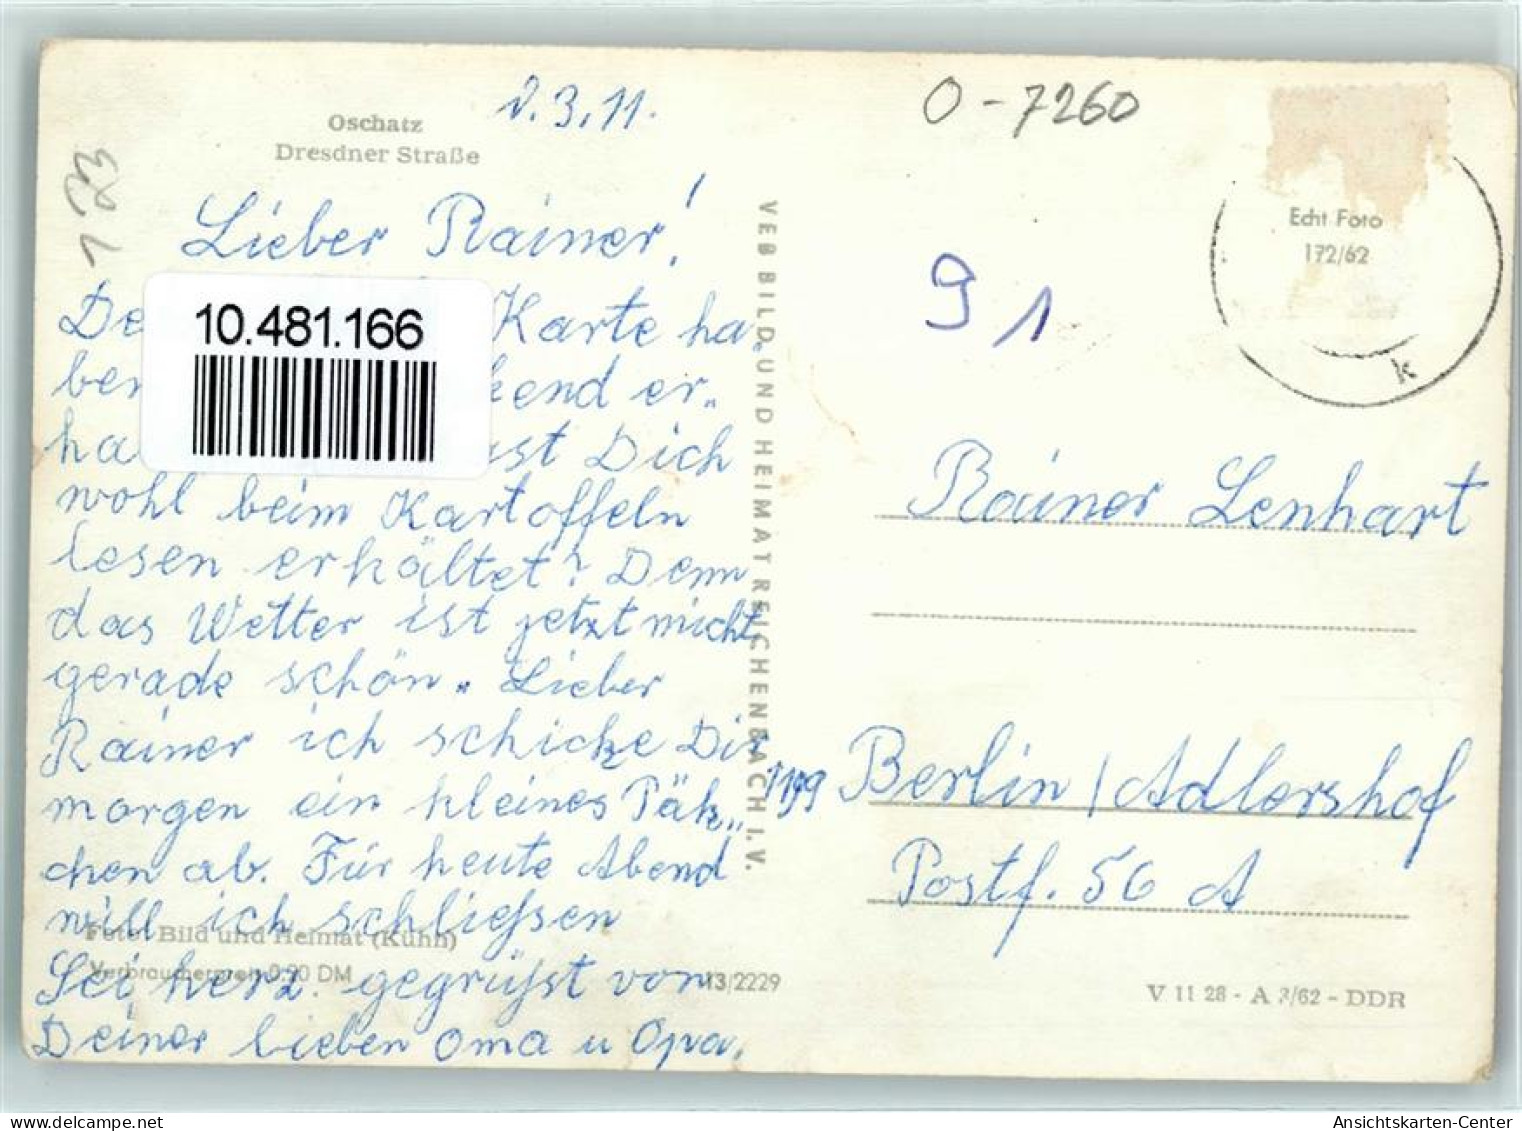 Oschatz
Dresdner Straße
d. 3. 11.
O-7260
Lieber Rainer!
De Karte ha„
ben kend er„
ha st Dich
wohl beim Kartoffeln
lesen erkältet? Denn
das Wetter ist jetzt nicht
gerade schön. Lieber
Rainer ich schicke Dir
morgen ein kleines Päk„
chen ab. Für heute Abend
will ich schließen
Sei herz. gegrüßt von
Deiner lieben Oma u Opa.
10.481.166
Foto: Bild und Heimat (Kühn)
Verbraucherpreis 0,20 DM
13/2229
VEB BILD UND HEIMAT REICHENBACH I. V.
Echt Foto
172/62
k
91
Rainer Lenhart
1199 Berlin / Adlershof
Postf. 56 A
V 11 28 - A 3/62 - DDR
Ansichtskarten-Center